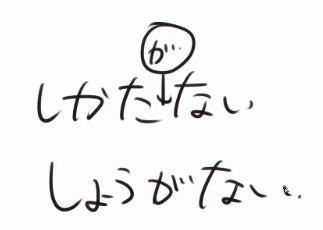 が
しかたない
しょうがない